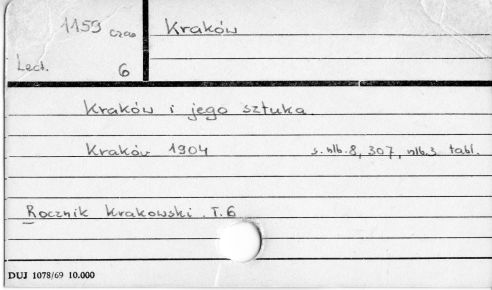 1159 czas Kraków
Lect. 6
Kraków i jego sztuka.
Kraków 1904 s. nlb. 8, 307, nlb. 3. tabl.
Rocznik Krakowski. T. 6
DUJ 1078/69 10.000